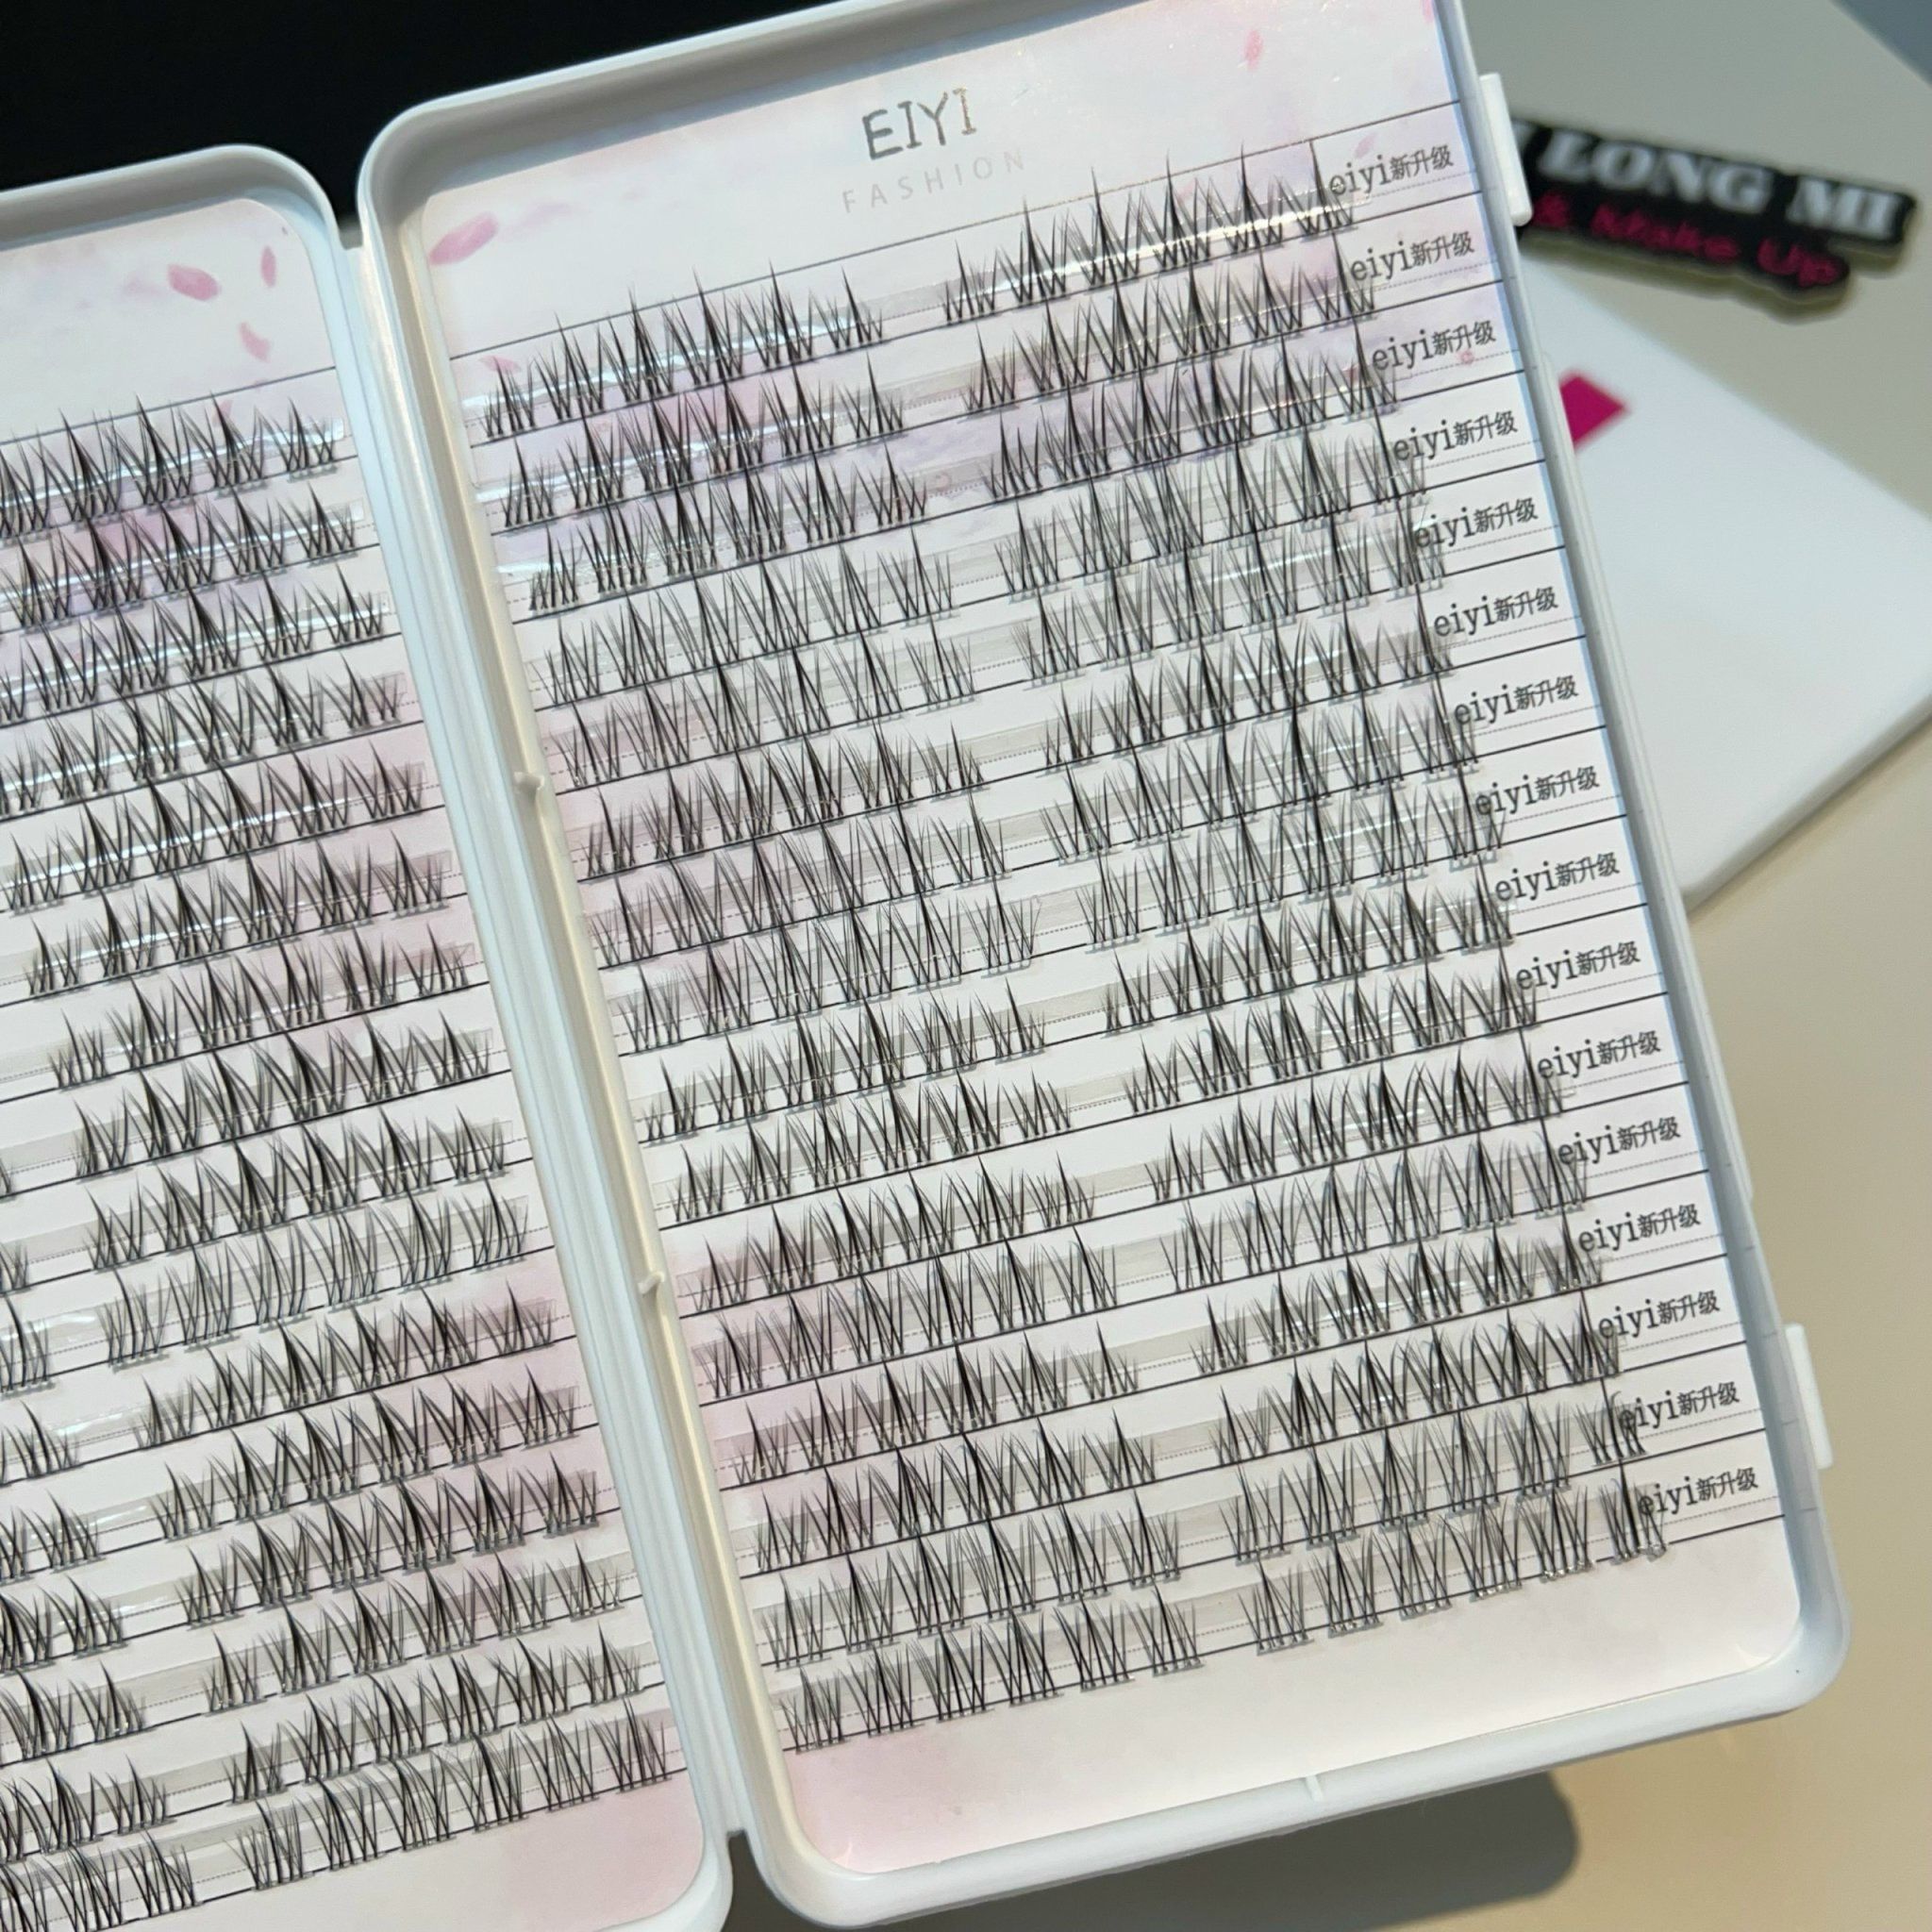 EIYI
FASHION
eiyi新升级
eiyi新升级
eiyi新升级
eiyi新升级
eiyi新升级
eiyi新升级
eiyi新升级
eiyi新升级
eiyi新升级
eiyi新升级
eiyi新升级
eiyi新升级
eiyi新升级
eiyi新升级
eiyi新升级
eiyi新升级
LONG MI
& Make Up